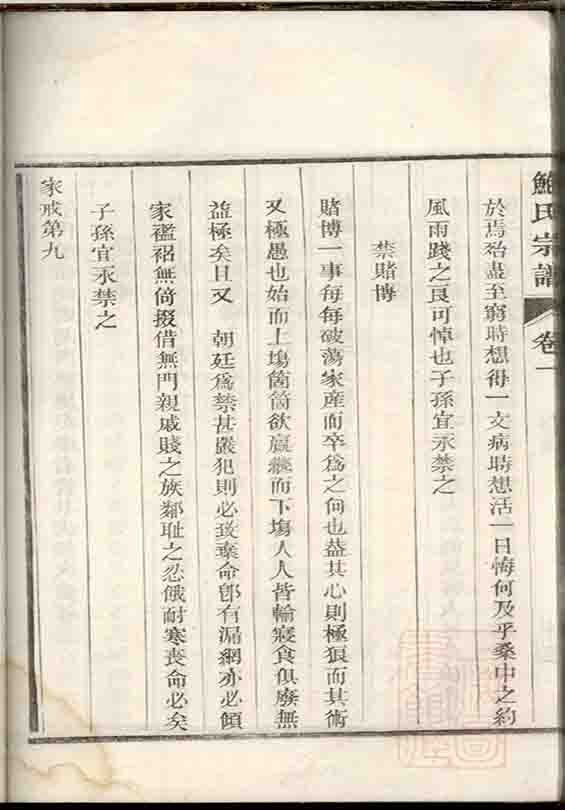 鮑氏宗譜 卷一
於焉殆盡至窮時想得一文病時想活一日悔何及乎桑中之約
風雨踐之良可悼也子孫宜永禁之
禁賭博
賭博一事每每破蕩家産而卒爲之何也益其心則極狠而其術
又極愚也始而上塲箇箇欲贏繼而下塲人人皆輸寢食俱廢無
益極矣且又 朝廷爲禁甚嚴犯則必致棄命卽有漏網亦必傾
家襤褛無倚掇借無門親戚賤之族鄰耻之忍餓耐寒喪命必矣
子孫宜永禁之
家戒第九